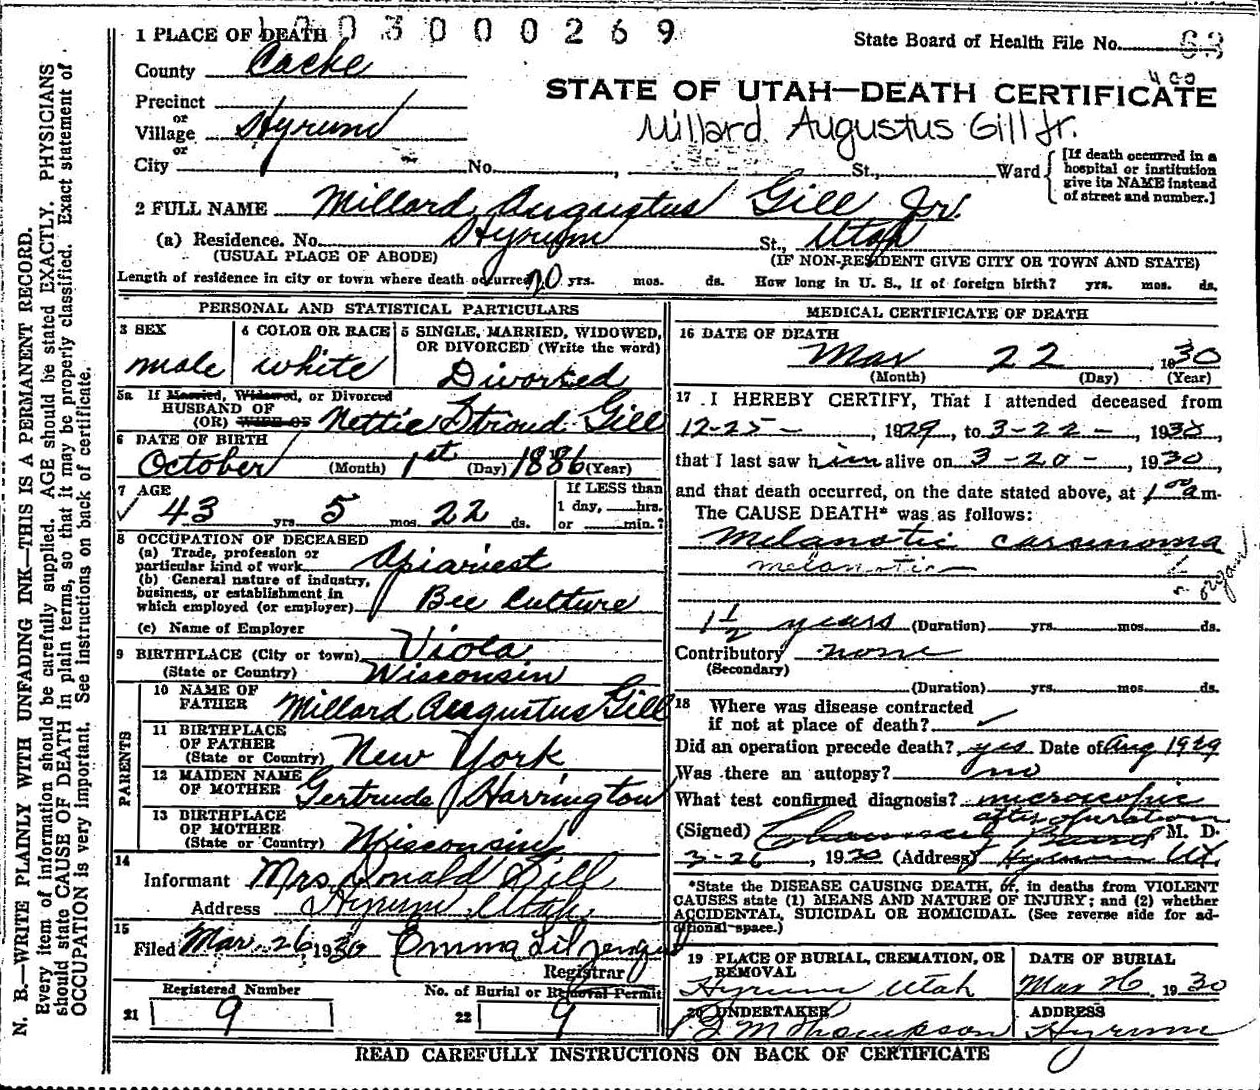 1 PLACE OF DEATH
003000269
State Board of Health File No. 63
County Cache
400
STATE OF UTAH—DEATH CERTIFICATE
Precinct
or
Village Hyrum
Millard Augustus Gill Jr.
or
City No. , St., Ward
[If death occurred in a
hospital or institution
give its NAME instead
of street and number.]
2 FULL NAME Millard Augustus Gill Jr.
(a) Residence. No. Hyrum St., Utah
(USUAL PLACE OF ABODE) (IF NON-RESIDENT GIVE CITY OR TOWN AND STATE)
Length of residence in city or town where death occurred 20 yrs. mos. ds. How long in U. S., if of foreign birth? yrs. mos. ds.
PERSONAL AND STATISTICAL PARTICULARS
3 SEX
male
4 COLOR OR RACE
white
5 SINGLE, MARRIED, WIDOWED,
OR DIVORCED (Write the word)
Divorced
5a If Married, Widowed, or Divorced
HUSBAND OF
(OR) WIFE OF Nettie Stroud Gill
6 DATE OF BIRTH
October (Month) 1st (Day) 1886 (Year)
7 AGE
43 yrs 5 mos 22 ds.
If LESS than
1 day, hrs.
or min.?
8 OCCUPATION OF DECEASED
(a) Trade, profession or
particular kind of work Apiariest
(b) General nature of industry,
business, or establishment in
which employed (or employer) Bee Culture
(c) Name of Employer
9 BIRTHPLACE (City or town) Viola
(State or Country) Wisconsin
PARENTS
10 NAME OF
FATHER Millard Augustus Gill
11 BIRTHPLACE
OF FATHER
(State or Country) New York
12 MAIDEN NAME
OF MOTHER Gertrude Harrington
13 BIRTHPLACE
OF MOTHER
(State or Country) Wisconsin
14
Informant Mrs Donald Gill
Address Hyrum Utah
15
Filed Mar. 26 1930 Emma
Registrar
Registered Number
21 9
No. of Burial or Removal Permit
22 9
MEDICAL CERTIFICATE OF DEATH
16 DATE OF DEATH
Mar 22 1930
(Month) (Day) (Year)
17 I HEREBY CERTIFY, That I attended deceased from
12-25-, 1929, to 3-22-, 1930,
that I last saw him alive on 3-20-, 1930,
and that death occurred, on the date stated above, at 1 00 am.
The CAUSE DEATH* was as follows:
Melanotic carcinoma
melanotic
organ
1 1/2 years (Duration) yrs. mos. ds.
Contributory none
(Secondary)
(Duration) yrs. mos. ds.
18 Where was disease contracted
if not at place of death?
Did an operation precede death? yes Date of Aug 1929
Was there an autopsy? no
What test confirmed diagnosis? microscopic
after operation
(Signed) M. D.
3-26, 1930 (Address) Hyrum Ut.
*State the DISEASE CAUSING DEATH, or, in deaths from VIOLENT
CAUSES state (1) MEANS AND NATURE OF INJURY; and (2) whether
ACCIDENTAL, SUICIDAL OR HOMICIDAL. (See reverse side for ad-
ditional space.)
19 PLACE OF BURIAL, CREMATION, OR
REMOVAL
Hyrum Utah
DATE OF BURIAL
Mar 26 1930
20 UNDERTAKER
M Thompson
ADDRESS
Hyrum
READ CAREFULLY INSTRUCTIONS ON BACK OF CERTIFICATE
N. B.—WRITE PLAINLY WITH UNFADING INK—THIS IS A PERMANENT RECORD.
Every item of information should be carefully supplied. AGE should be stated EXACTLY. PHYSICIANS
should state CAUSE OF DEATH in plain terms, so that it may be properly classified. Exact statement of
OCCUPATION is very important. See instructions on back of certificate.